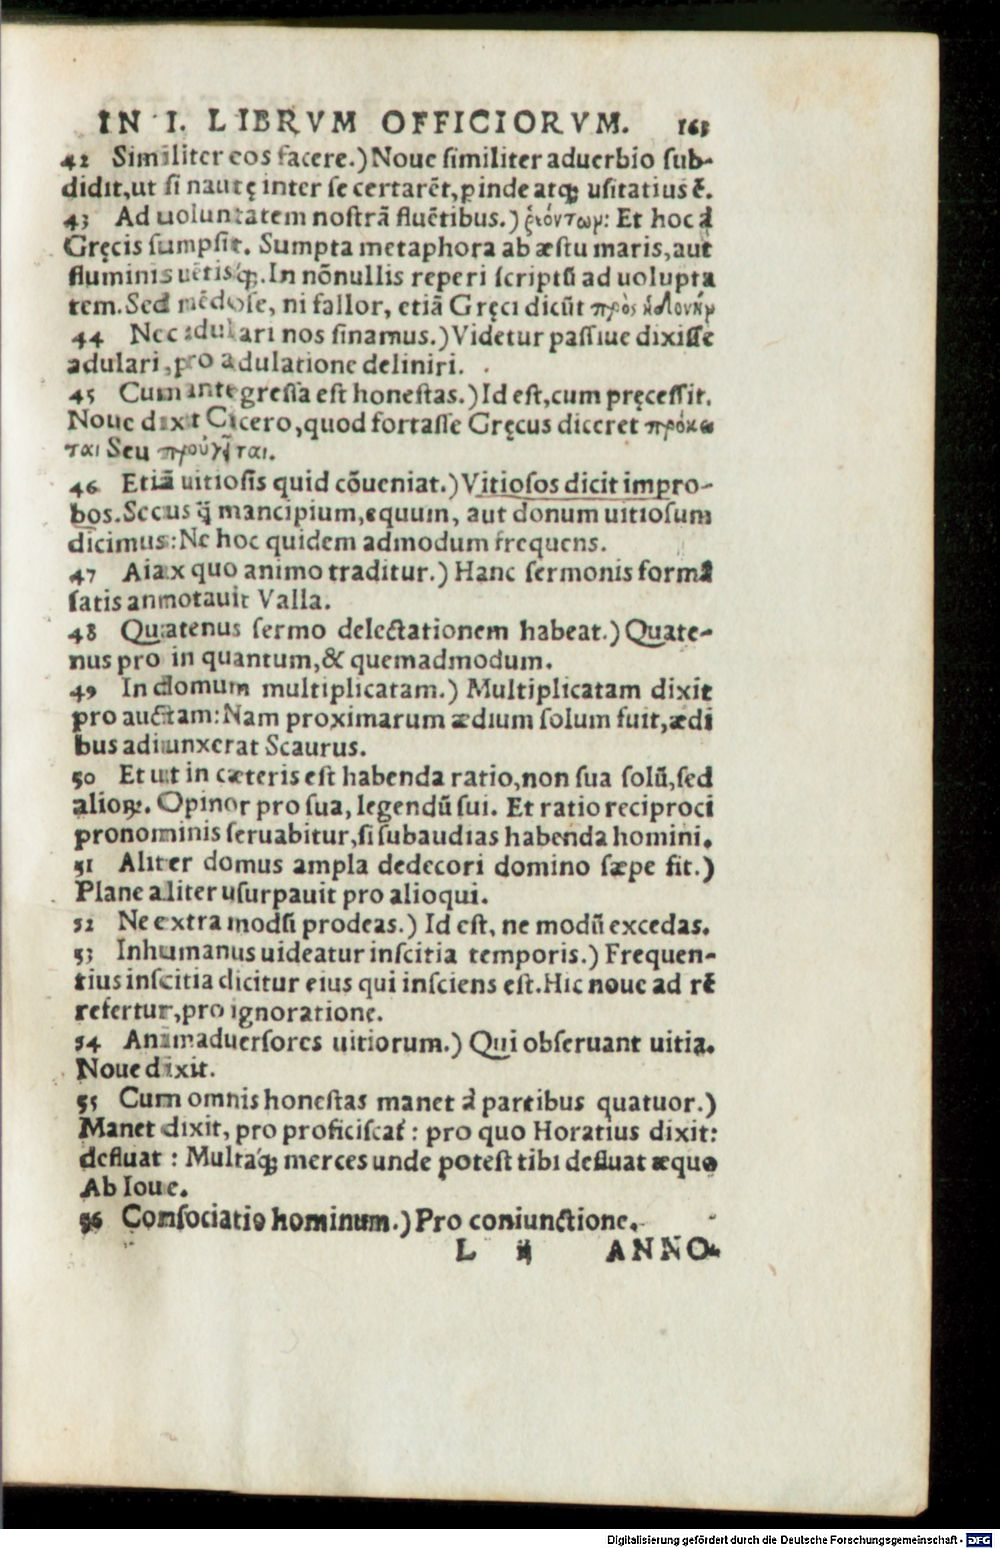 IN I. LIBRVM OFFICIORVM. 163
42 Similiter eos facere.) Noue similiter aduerbio sub-
didit, ut si nautę inter se certarēt, ꝑinde atq; usitatius ē.
43 Ad uoluntatem nostrā fluētibus.) ῥεόντων: Et hoc à
Gręcis sumpsit. Sumpta metaphora ab æstu maris, aut
fluminis uētisq;. In nōnullis reperi scriptū ad uolupta
tem. Sed mēdose, ni fallor, etiā Gręci dicūt πρὸς ἡδονὴν
44 Nec adulari nos sinamus.) Videtur passiue dixisse
adulari, pro adulatione deliniri.
45 Cum antegressa est honestas.) Id est, cum pręcessit.
Noue dixit Cicero, quod fortasse Gręcus diceret πρόκει
ται Seu προύγῆται.
46 Etiā uitiosis quid cōueniat.) Vitiosos dicit impro-
bos. Secus q̄ mancipium, equum, aut donum uitiosum
dicimus: Ne hoc quidem admodum frequens.
47 Aiax quo animo traditur.) Hanc sermonis formā
satis annotauit Valla.
48 Quatenus sermo delectationem habeat.) Quate-
nus pro in quantum, & quemadmodum.
49 In domum multiplicatam.) Multiplicatam dixit
pro auctam: Nam proximarum ædium solum fuit, ædi
bus adiunxerat Scaurus.
50 Et ut in cæteris est habenda ratio, non sua solū, sed
alioꝝ. Opinor pro sua, legendū sui. Et ratio reciproci
pronominis seruabitur, si subaudias habenda homini.
51 Aliter domus ampla dedecori domino sæpe fit.)
Plane aliter usurpauit pro alioqui.
52 Ne extra modū prodeas.) Id est, ne modū excedas.
53 Inhumanus uideatur inscitia temporis.) Frequen-
tius inscitia dicitur eius qui insciens est. Hic noue ad rē
refertur, pro ignoratione.
54 Animaduersores uitiorum.) Qui obseruant uitia.
Noue dixit.
55 Cum omnis honestas manet à partibus quatuor.)
Manet dixit, pro proficiscat᷑: pro quo Horatius dixit:
defluat: Multaq́; merces unde potest tibi defluat æquo
Ab Ioue.
56 Consociatio hominum.) Pro coniunctione.
L ij ANNO-
Digitalisierung gefördert durch die Deutsche Forschungsgemeinschaft - DFG